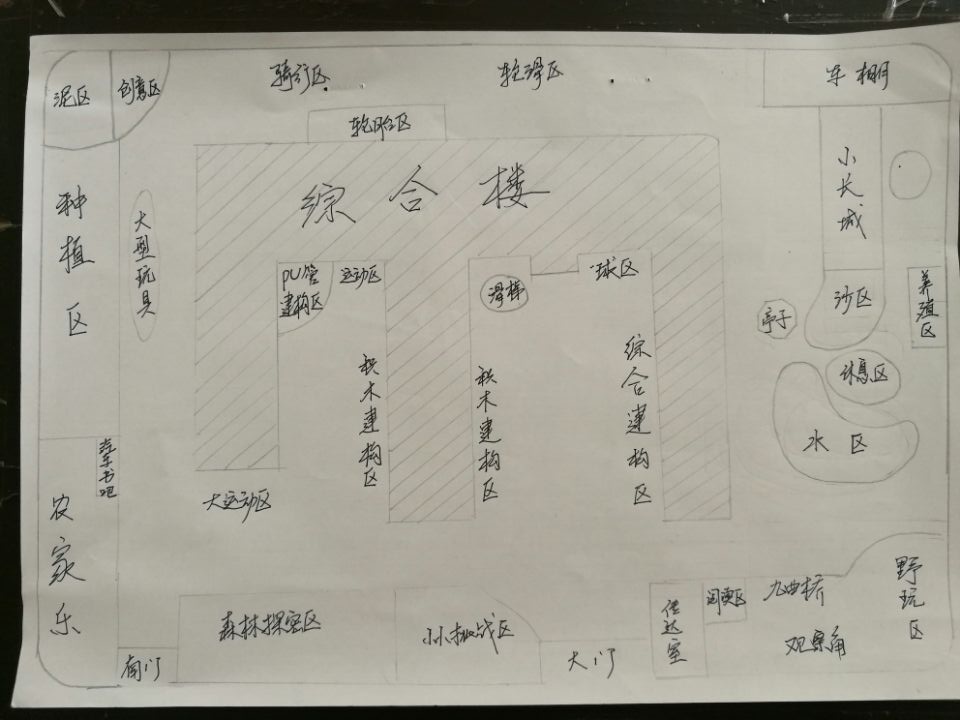 泥区
创意区
骑行区
轮滑区
车棚
轮胎区
综合楼
小长城
种植区
大型玩具
PU管
建构区
运动区
滑梯
球区
沙区
养殖区
亭子
休息区
水区
积木建构区
积木建构区
综合建构区
书吧
大运动区
农家乐
森林探密区
小小挑战区
大门
南门
传达室
阅读区
九曲桥
观景角
野玩区